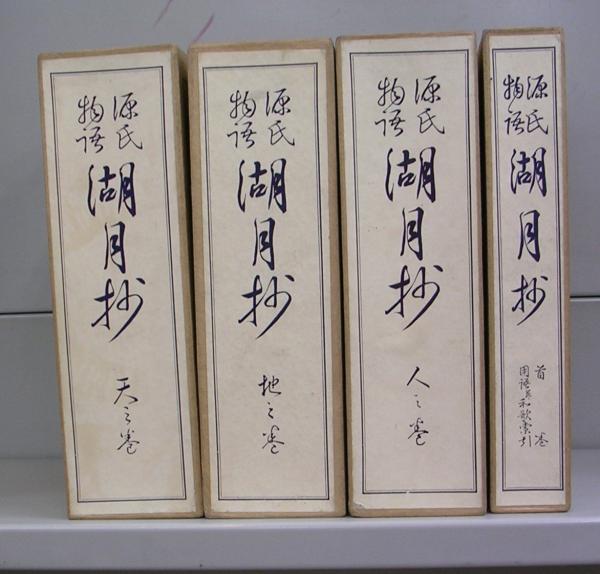 源氏
物語
湖月抄
天之巻
源氏
物語
湖月抄
地之巻
源氏
物語
湖月抄
人之巻
源氏
物語
湖月抄
首巻
用語並和歌索引